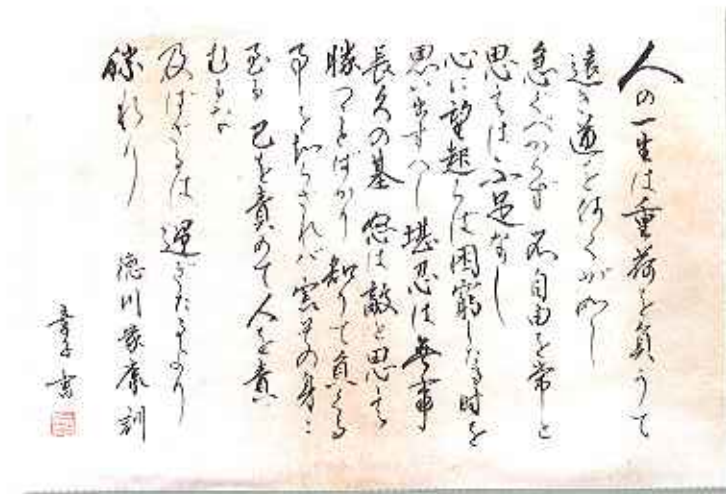 人の一生は重荷を負うて
遠き道を行くが如し
急ぐべからず 不自由を常と
思えは不足なし
心に望起らは困窮したる時を
思い出すへし 堪忍は無事
長久の基 怒は敵と思え
勝つことばかり知りて負くる
事を知らされバ害其の身に
至る 己を責めて人を責
むるな
及ばざるは過ぎたるより
勝れり 徳川家康訓
書